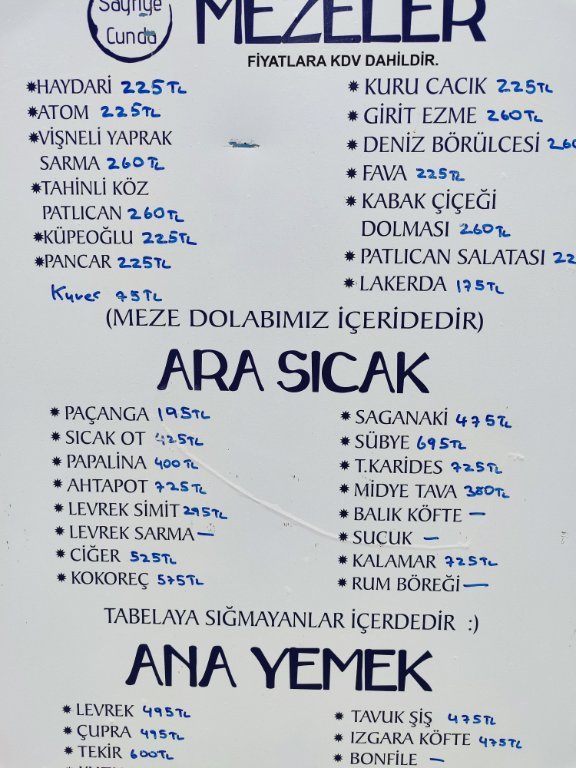 Sayfiye
Cunda
MEZELER
FİYATLARA KDV DAHİLDİR.
HAYDARİ 225TL
ATOM 225TL
VİŞNELİ YAPRAK
SARMA 260TL
TAHİNLİ KÖZ
PATLICAN 260TL
KÜPEOĞLU 225TL
PANCAR 225TL
Kuver 75TL
KURU CACIK 225TL
GİRİT EZME 260TL
DENİZ BÖRÜLCESİ 260
FAVA 225TL
KABAK ÇİÇEĞİ
DOLMASI 260TL
PATLICAN SALATASI 22
LAKERDA 175TL
(MEZE DOLABIMIZ İÇERİDEDİR)
ARA SICAK
PAÇANGA 195TL
SICAK OT 425TL
PAPALİNA 400TL
AHTAPOT 725TL
LEVREK SİMİT 295TL
LEVREK SARMA —
CİĞER 525TL
KOKOREÇ 575TL
SAGANAKİ 475TL
SÜBYE 695TL
T.KARİDES 725TL
MİDYE TAVA 380TL
BALIK KÖFTE —
SUÇUK —
KALAMAR 725TL
RUM BÖREĞİ —
TABELAYA SIĞMAYANLAR İÇERDEDİR :)
ANA YEMEK
LEVREK 495TL
ÇUPRA 495TL
TEKİR 600TL
TAVUK ŞİŞ 475TL
IZGARA KÖFTE 475TL
BONFİLE —